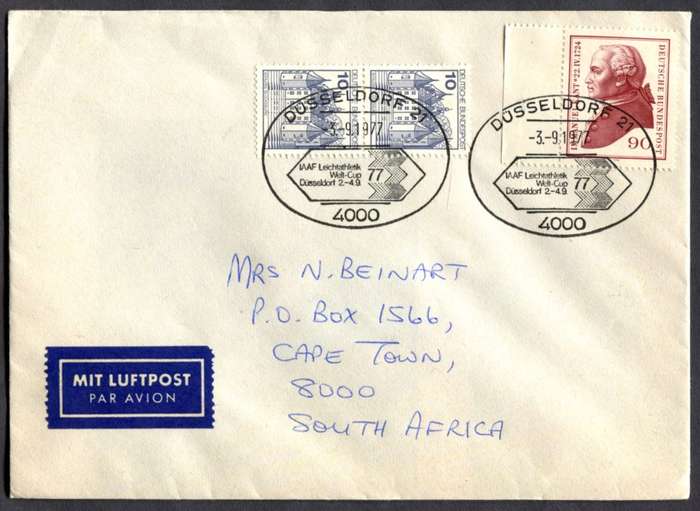 10
DEUTSCHE BUNDESPOST
10
DEUTSCHE BUNDESPOST
22.IV.1724
DEUTSCHE BUNDESPOST
90
DÜSSELDORF 21
-3.-9.1977
IAAF Leichtathletik
Welt-Cup 77
Düsseldorf 2.-4.9.
4000
DÜSSELDORF 21
-3.-9.1977
IAAF Leichtathletik
Welt-Cup 77
Düsseldorf 2.-4.9.
4000
MRS N. BEINART
P.O. BOX 1566,
CAPE TOWN,
8000
SOUTH AFRICA
MIT LUFTPOST
PAR AVION